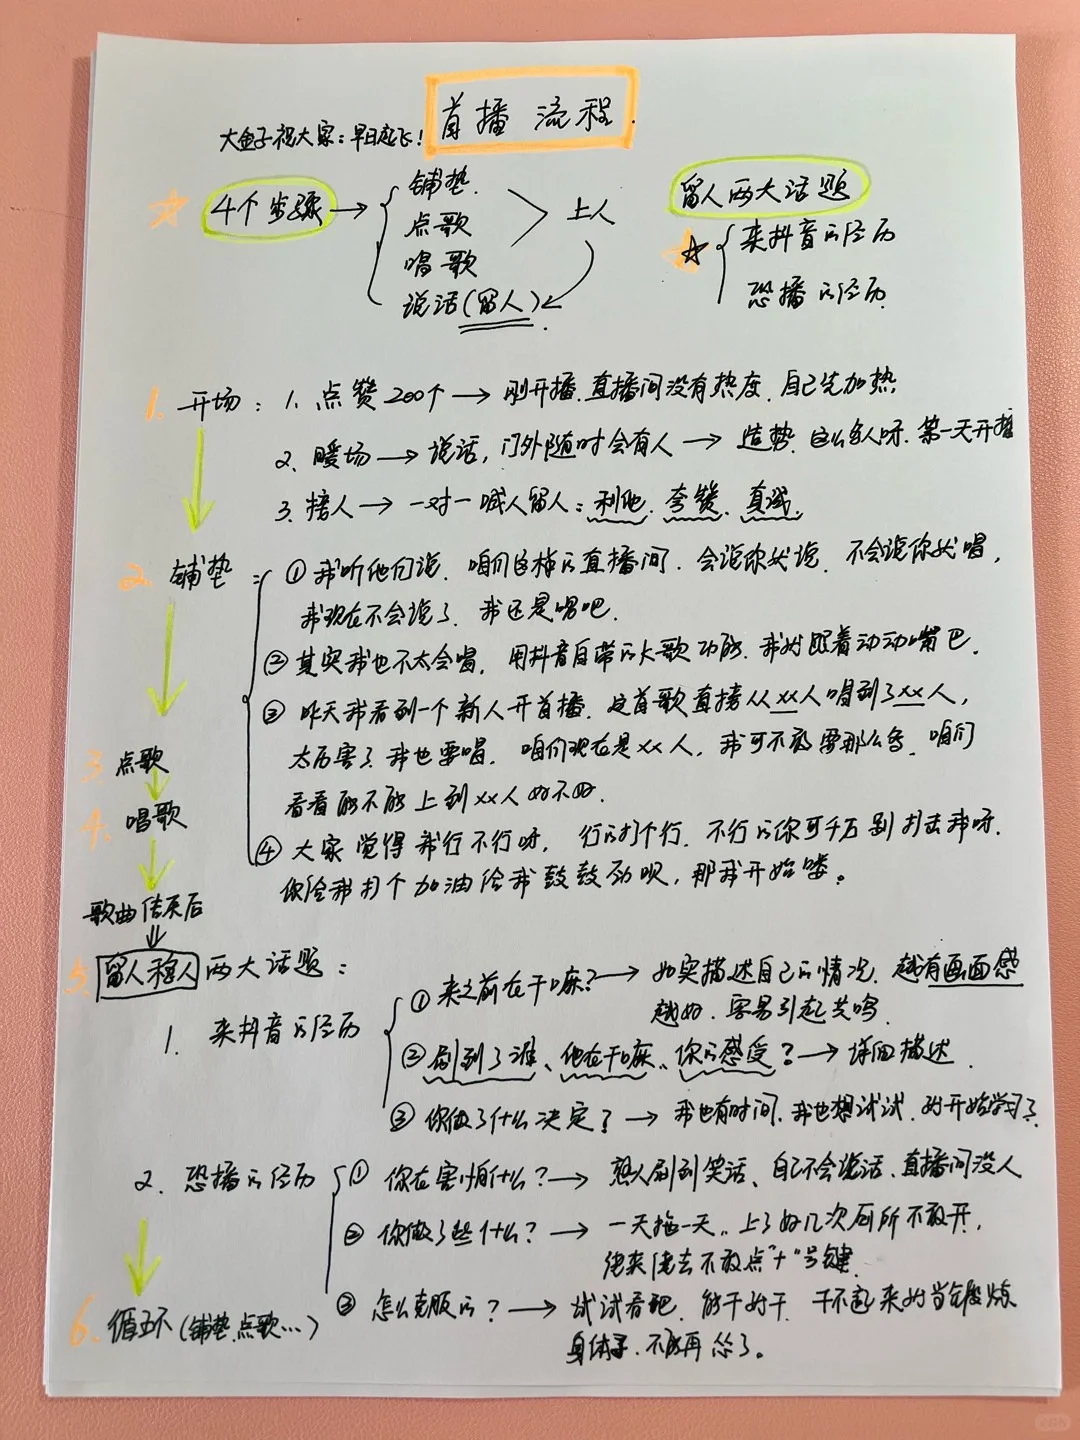 首播流程.
大鱼子祝大家:早日起飞!
4个步骤→
铺垫.
点歌
唱歌
说话(留人)
上人
留人两大话题
来抖音的经历
恐播的经历
1. 开场: 1. 点赞200个→刚开播.直播间没有热度.自己先加热.
2、暖场→说话,门外随时会有人→造势.这么多人呀.第一天开播
3. 接人→一对一喊人留人:利他.夸赞.真诚.
2. 铺垫: ①我听他们说.咱们这样的直播间.会说你就说.不会说你就唱,
我现在不会说了.我还是唱吧.
②其实我也不太会唱.用抖音自带的K歌功能.我对跟着动动嘴巴.
③昨天我看到一个新人开首播.这首歌直接从xx人唱到了xx人,
太厉害了.我也要唱.咱们现在是xx人,我可不敢要那么多.咱们
看看能不能上到xx人好不好.
3. 点歌
4. 唱歌
④大家觉得我行不行呀.行的打个行.不行的你可千万别打击我呀.
你给我打个加油给我鼓鼓劲呗,那我开始喽。
歌曲结束后
5. 留人稳人两大话题:
1. 来抖音的经历
①来之前在干嘛?→如实描述自己的情况.越有画面感
越好.容易引起共鸣.
②刷到了谁、他在干嘛、你的感受?→详细描述.
③你做了什么决定?→我也有时间.我也想试试.对开始学习了.
2. 恐播的经历
①你在害怕什么?→熟人刷到笑话、自己不会说话、直播间没人
②你做了些什么?→一天拖一天..上了好几次厕所不敢开,
绕来绕去不敢点"+"号键.
③怎么克服的?→试试看吧.能干对干.干不起来对当锻炼
身体了.不能再怂了。
6. 循环(铺垫.点歌...)